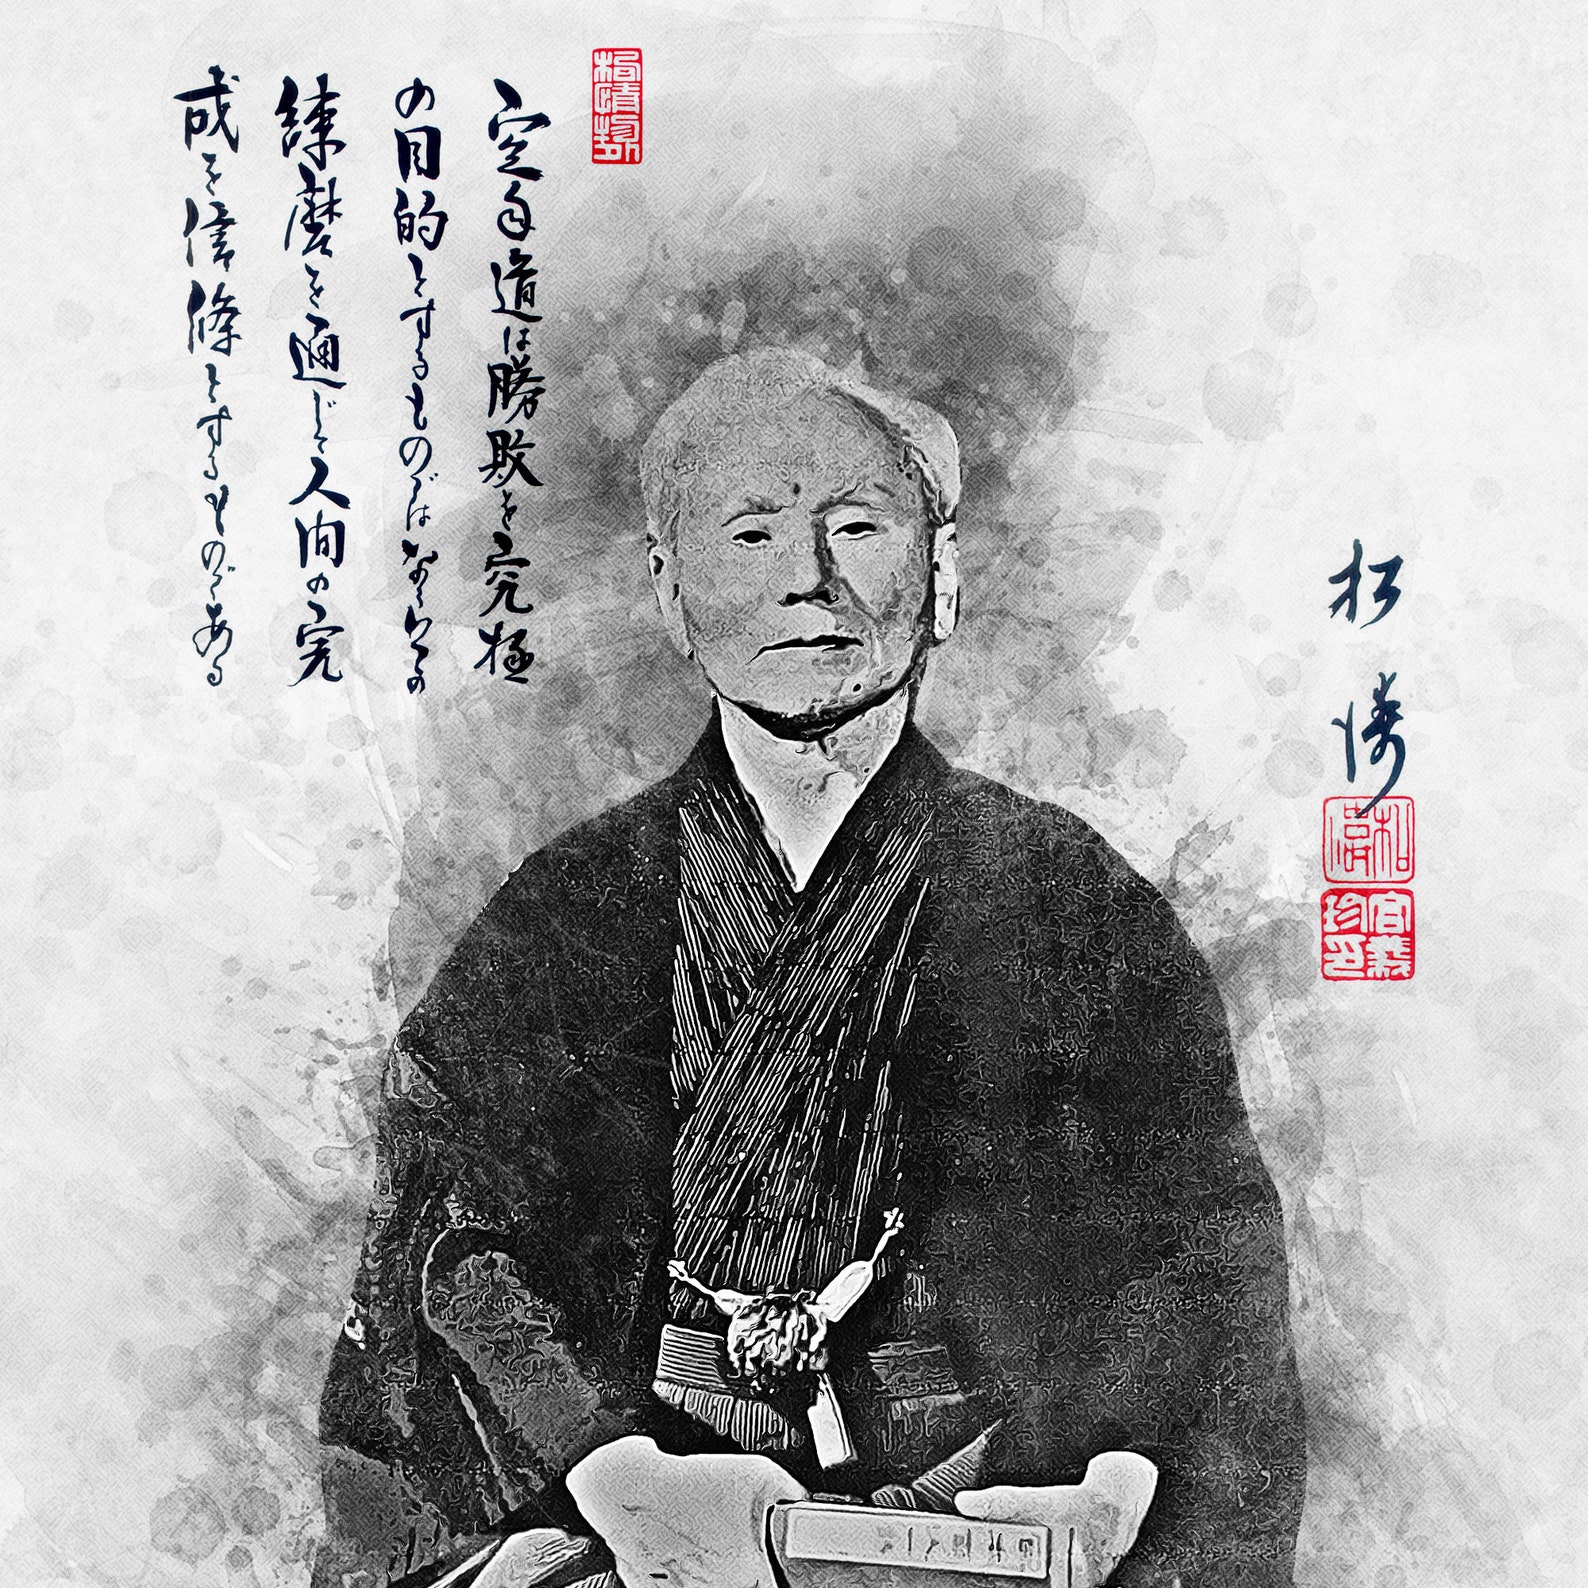 空手道は勝敗を究極
の目的とするものではなく心の
練磨を通じて人間の完
成を信條とするものである
松濤